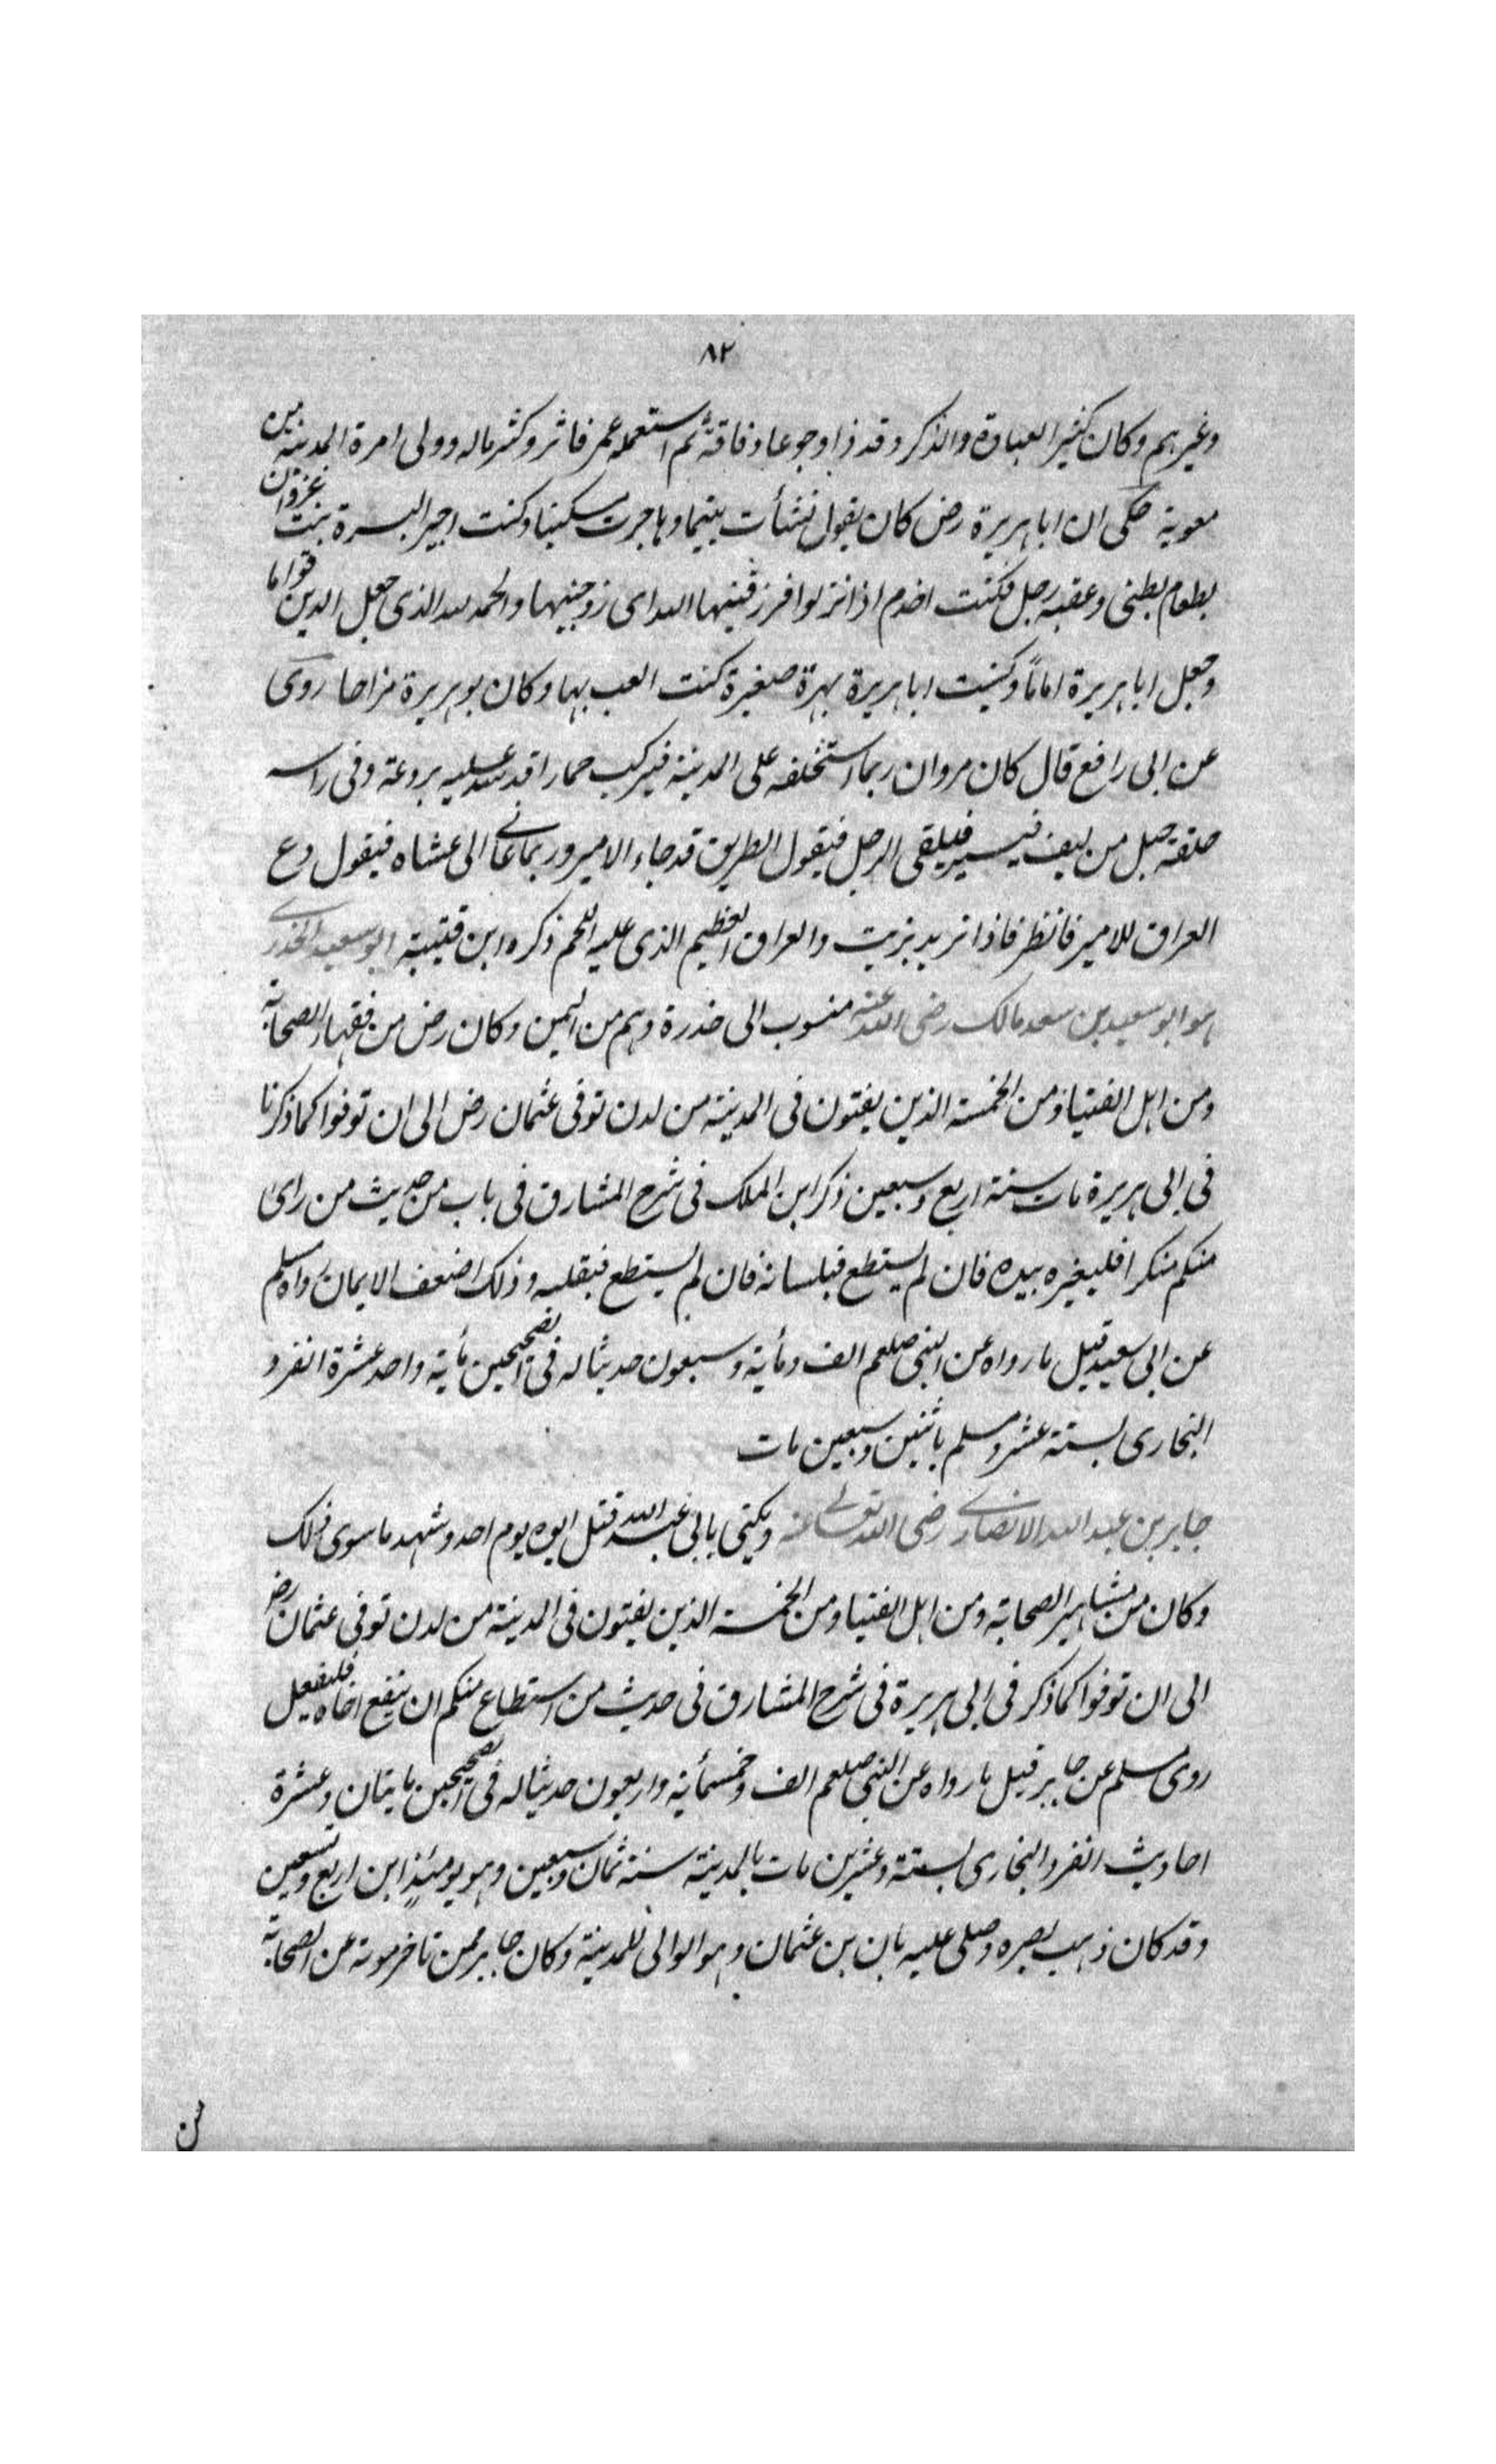 ٨٢
وغيرهم وكان كثير العبادة والذكر وقد ذا وجوعا وفاقة ثم استعمله عمر فاثر وكثر ماله وولى امرة المدينة من
معوية حكى ان ابا هريرة رض كان يقول نشأت يتيما وهاجرت مسكينا وكنت اجير البسرة بنت غزوان
بطعام بطنى وعقبه رجل فكنت اخدم اذا نزلوا فزوجنيها الله اى زوجنيها والحمد لله الذى جعل الدين قواما
وجعل ابا هريرة اماماً وكنيت ابا هريرة بهرة صغيرة كنت العب بها وكان بو هريرة مزاحا روى
عن ابى رافع قال كان مروان ربما استخلفه على المدينة فيركب حمارا قد شد عليه بردعة وفى راسه
حلقة حبل من ليف فيسير فيلقى الرجل فيقول الطريق قد جاء الامير وربما دعانى الى عشاه فيقول دع
العراق للامير فانظر فاذا ثريد بزيت والعراق العظيم الذى عليه اللحم ذكره ابن قتيبة ابو سعيد الخدرى
هو ابو سعيد بن سعد مالك رضى الله عنه منسوب الى خدرة وهم من اليمن وكان رض من فقهاء الصحابة
ومن اهل الفتيا ومن الخمسة الذين يفتون فى المدينة من لدن توفى عثمان رض الى ان توفوا كما ذكرنا
فى ابى هريرة مات سنة اربع وسبعين ذكر ابن الملك فى شرح المشارق فى باب من حديث من راى
منكم منكرا فليغيره بيده فان لم يستطع فبلسانه فان لم يستطع فبقلبه وذلك اضعف الايمان رواه مسلم
عن ابى سعيد قيل ما رواه عن النبى صلعم الف ومأية وسبعون حديثا له فى الصحيحين مأية واحد عشرة انفرد
البخارى بستة عشر ومسلم باثنين وسبعين مات
جابر بن عبد الله الانصارى رضى الله تعالى عنه ويكنى بابى عبد الله قتل ابوه يوم احد وشهد ما سوى ذلك
وكان من مشاهير الصحابة ومن اهل الفتيا ومن الخمسة الذين يفتون فى المدينة من لدن توفى عثمان رض
الى ان توفوا كما ذكر فى ابى هريرة فى شرح المشارق فى حديث من استطاع منكم ان ينفع اخاه فليفعل
روى مسلم عن جابر قيل ما رواه عن النبى صلعم الف وخمسمأية واربعون حديثا له فى الصحيحين مايتان وعشرة
احاديث انفرد البخارى بستة وعشرين مات بالمدينة سنة ثمان وسبعين وهو يومئذ ابن اربع وتسعين
وقد كان ذهب بصره وصلى عليه بان بن عثمان وهو الوالى للمدينة وكان جابر ممن تاخر موته عن الصحابة